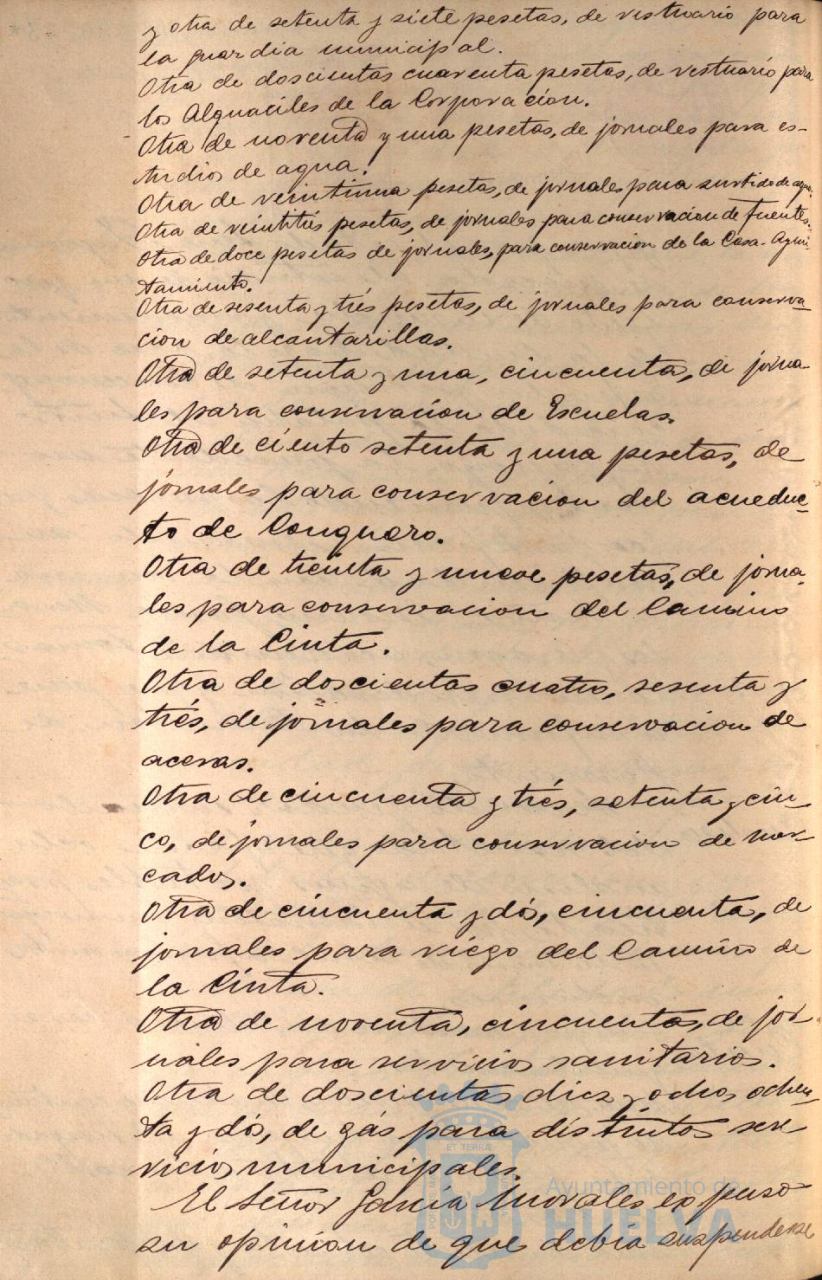 y otra de setenta y siete pesetas, de vestuario para
la guardia municipal.
Otra de doscientas cuarenta pesetas, de vestuario para
los Alguaciles de la Corporacion.
Otra de noventa y una pesetas, de jornales para es-
tudios de agua.
Otra de veintiuna pesetas, de jornales para surtido de agua.
Otra de veintitrés pesetas, de jornales para conservacion de fuentes.
Otra de doce pesetas de jornales, para conservacion de la Casa-Ayun-
tamiento.
Otra de sesenta y trés pesetas, de jornales para conserva-
cion de alcantarillas.
Otra de setenta y una, cincuenta, de jorna-
les para conservacion de Escuelas.
Otra de ciento setenta y una pesetas, de
jornales para conservacion del acueduc-
to de Conquero.
Otra de treinta y nueve pesetas, de jorna-
les para conservacion del Camino
de la Cinta.
Otra de doscientas cuatro, sesenta y
trés, de jornales para conservacion de
aceras.
Otra de cincuenta y trés, setenta y cin-
co, de jornales para conservacion de mer-
cados.
Otra de cincuenta y dós, cincuenta, de
jornales para riego del Camino de
la Cinta.
Otra de noventa, cincuenta, de jor-
nales para servicios sanitarios.
Otra de doscientas diez y ocho, ochen-
ta y dós, de gás para distintos ser-
vicios municipales.
El Señor García Morales expuso
su opinion de que debia suspenderse
Ayuntamiento de
HUELVA